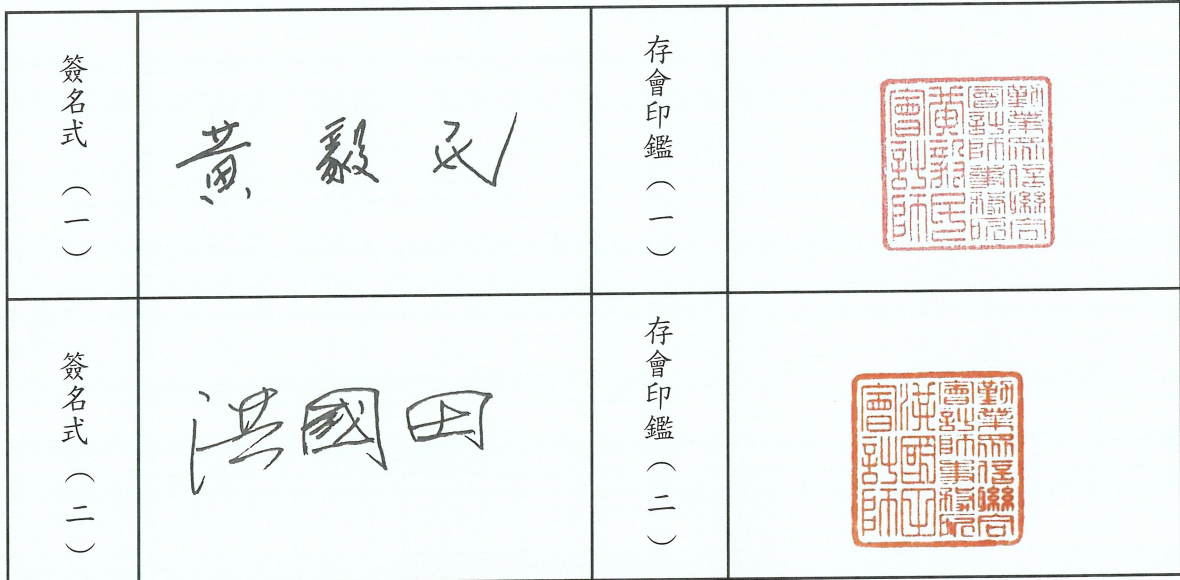 簽名式（一）
黃毅民
存會印鑑（一）
勤業眾信聯合
會計師事務所
黃毅民
會計師
簽名式（二）
洪國田
存會印鑑（二）
勤業眾信聯合
會計師事務所
洪國田
會計師